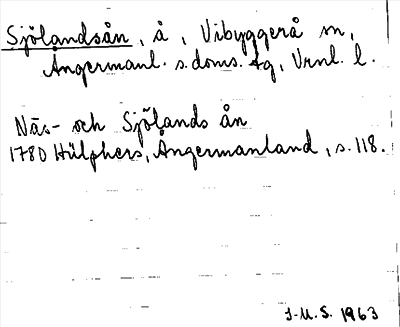 Sjölandsån, å, Vibyggerå sn,
Ångermanl. s. doms. tg, Vrnl. l.
Näs- och Sjölands ån
1780 Hülphers, Ångermanland, s. 118.
J-U.S. 1963